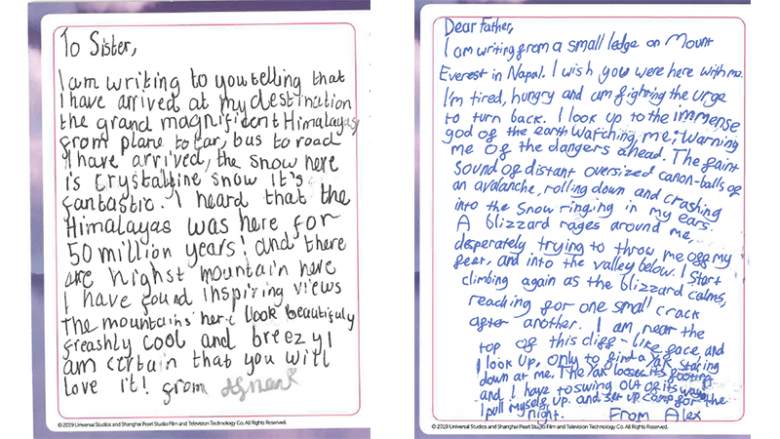 To Sister,
I am writing to you telling that
I have arrived at my destination
the grand magnificent Himalayas
from plane to car, bus to road
I have arrived, the snow here
is crystalline snow it's
fantastic. I heard that the
Himalayas was here for
50 million years! and there
are highst mountain here
I have found inspiring views
The mountains here look beautifuly
freashly cool and breezy I
am certain that you will
love it! from
© 2019 Universal Studios and Shanghai Pearl Studio Film and Television Technology Co. All Rights Reserved.
Dear Father,
I am writing from a small ledge on Mount
Everest in Napal. I wish you were here with me.
I'm tired, hungry and am fighting the urge
to turn back. I look up to the immense
god of the earth watching me; warning
me of the dangers ahead. The faint
sound of distant oversized canon-balls of
an avalanche, rolling down and crashing
into the snow ringing in my ears.
A blizzard rages around me,
desperately trying to throw me off my
feet, and into the valley below. I start
climbing again as the blizzard calms,
reaching for one small crack
after another. I am near the
top of this cliff-like face, and
I look up, only to find a yak staring
down at me. The yak looses its footing
and I have to swing out of its way.
I pull myself up and set up camp for the
night. From Alex
© 2019 Universal Studios and Shanghai Pearl Studio Film and Television Technology Co. All Rights Reserved.